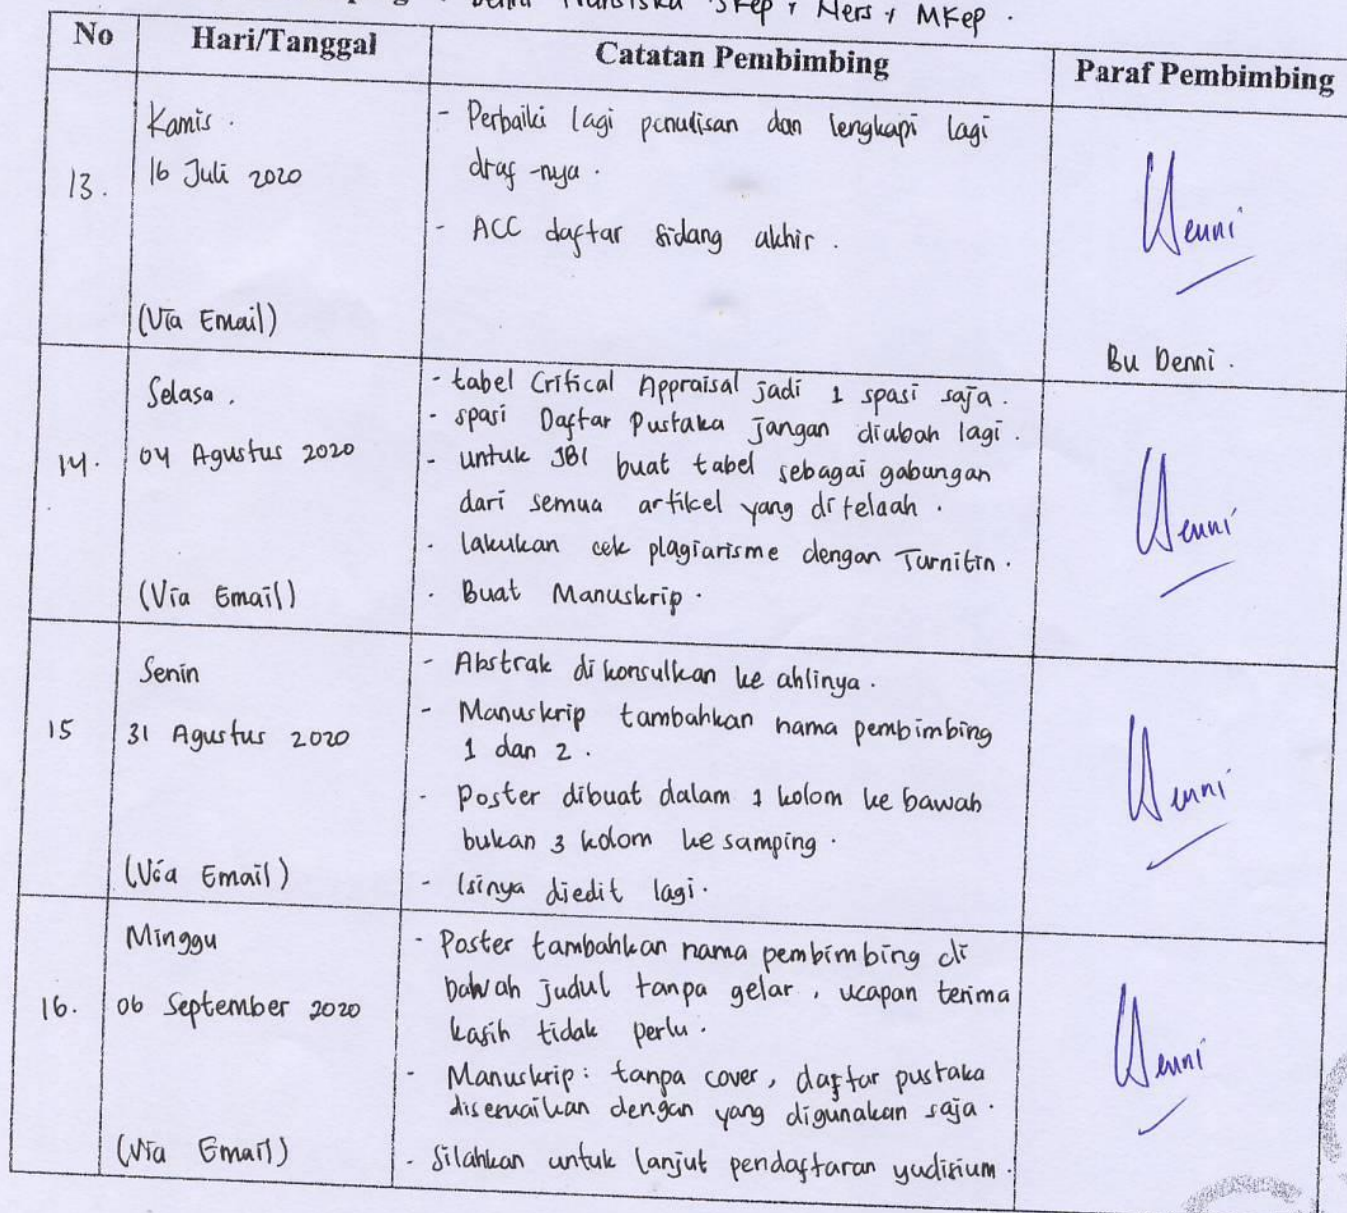 SKep, Ners, MKep.
No Hari/Tanggal Catatan Pembimbing Paraf Pembimbing
13.
Kamis.
16 Juli 2020
(Via Email)
- Perbaiki lagi penulisan dan lengkapi lagi
draf-nya.
- ACC daftar sidang akhir.
Denni
Bu Denni.
14.
Selasa.
04 Agustus 2020
(Via Email)
- tabel Critical Appraisal jadi 1 spasi saja.
- spasi Daftar Pustaka jangan diubah lagi.
- untuk JBI buat tabel sebagai gabungan
dari semua artikel yang ditelaah.
- lakukan cek plagiarisme dengan Turnitin.
- Buat Manuskrip.
Denni
15
Senin
31 Agustus 2020
(Via Email)
- Abstrak di konsulkan ke ahlinya.
- Manuskrip tambahkan nama pembimbing
1 dan 2.
- Poster dibuat dalam 1 kolom ke bawah
bukan 3 kolom ke samping.
- Isinya diedit lagi.
Denni
16.
Minggu
06 September 2020
(Via Email)
- Poster tambahkan nama pembimbing di
bawah judul tanpa gelar, ucapan terima
kasih tidak perlu.
- Manuskrip: tanpa cover, daftar pustaka
disesuaikan dengan yang digunakan saja.
- Silahkan untuk lanjut pendaftaran yudisium.
Denni